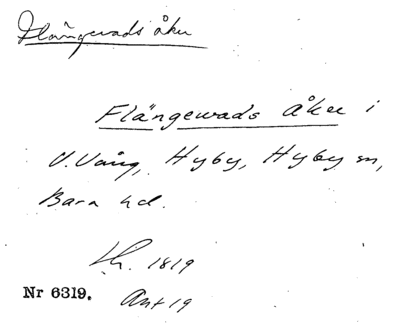 Flängewads åker
Flängewads åker i
V. Vång, Hyby, Hyby sn,
Bara hd.
Lh. 1819
Nr 6319. Akt 19